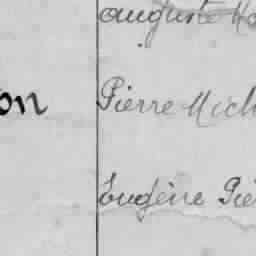 auguste
on Pierre Mich
Eugène Piè